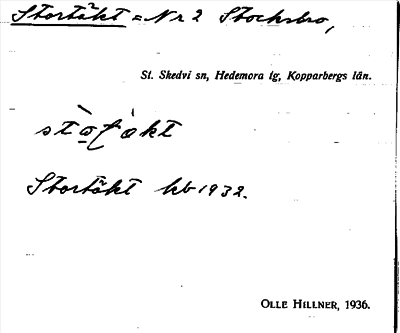 Stortäkt = Nr 2 Stocksbro,
St. Skedvi sn, Hedemora tg, Kopparbergs län.
Stortäkt hb 1932.
OLLE HILLNER, 1936.